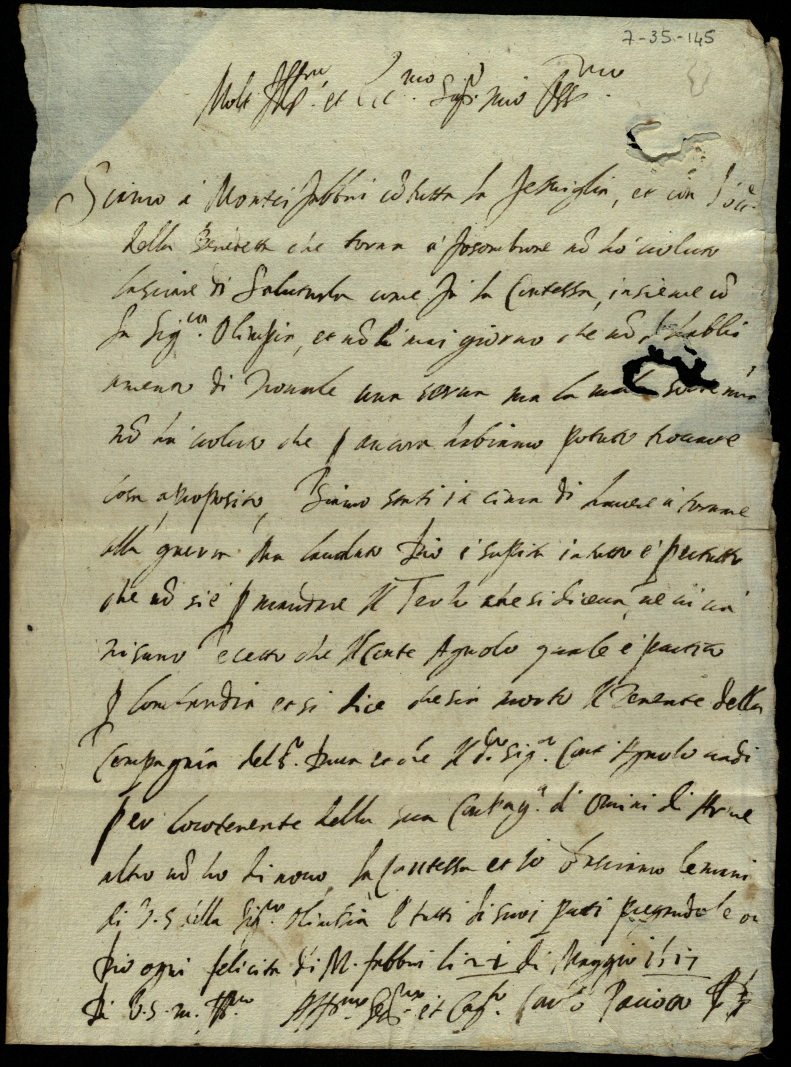 7-35-145
Molt Ill.re et Ecc.mo Sig.r mio Oss.mo
Siamo a Monte fabbri cõ tutta la fameglia, et con
della Benedetta che torna a fosombrone nõ ho voluto
lasciare di Salutarla come fa la Contessa, insieme cõ
la Sig.ra Olimpia, et nõ è mai giorno che nõ habbia
di trovare una serva ma la mala sorte mia
nõ ha voluto che p ancora habiamo potuto trovare
cosa aproposito, Siamo stati in cima di havere a tornare
alla guerra ma laudato Dio è in tutto e per tutto
che nõ si è p mandare il che si diceva, ne vi va
nisuno ecetto che il Conte Agnolo quale è partito
p Lombardia et si dice che sia morto il Tenente della
Compagnia del S.r Duca et che il d.o Sig.r Cont Agnolo vadi
per Locotenente della sua Compag.a d'Omini di Arme
altro nõ ho di novo, la Contessa et io basciamo le mani
di V.S. della Sig.ra Olimpia e tutti di suoi putti pregandole da
Dio ogni felicita di M. fabbri li 21 di Maggio 1617
Di V.S. m. Ill.re Aff.mo Ser.re et Cog.to Carlo